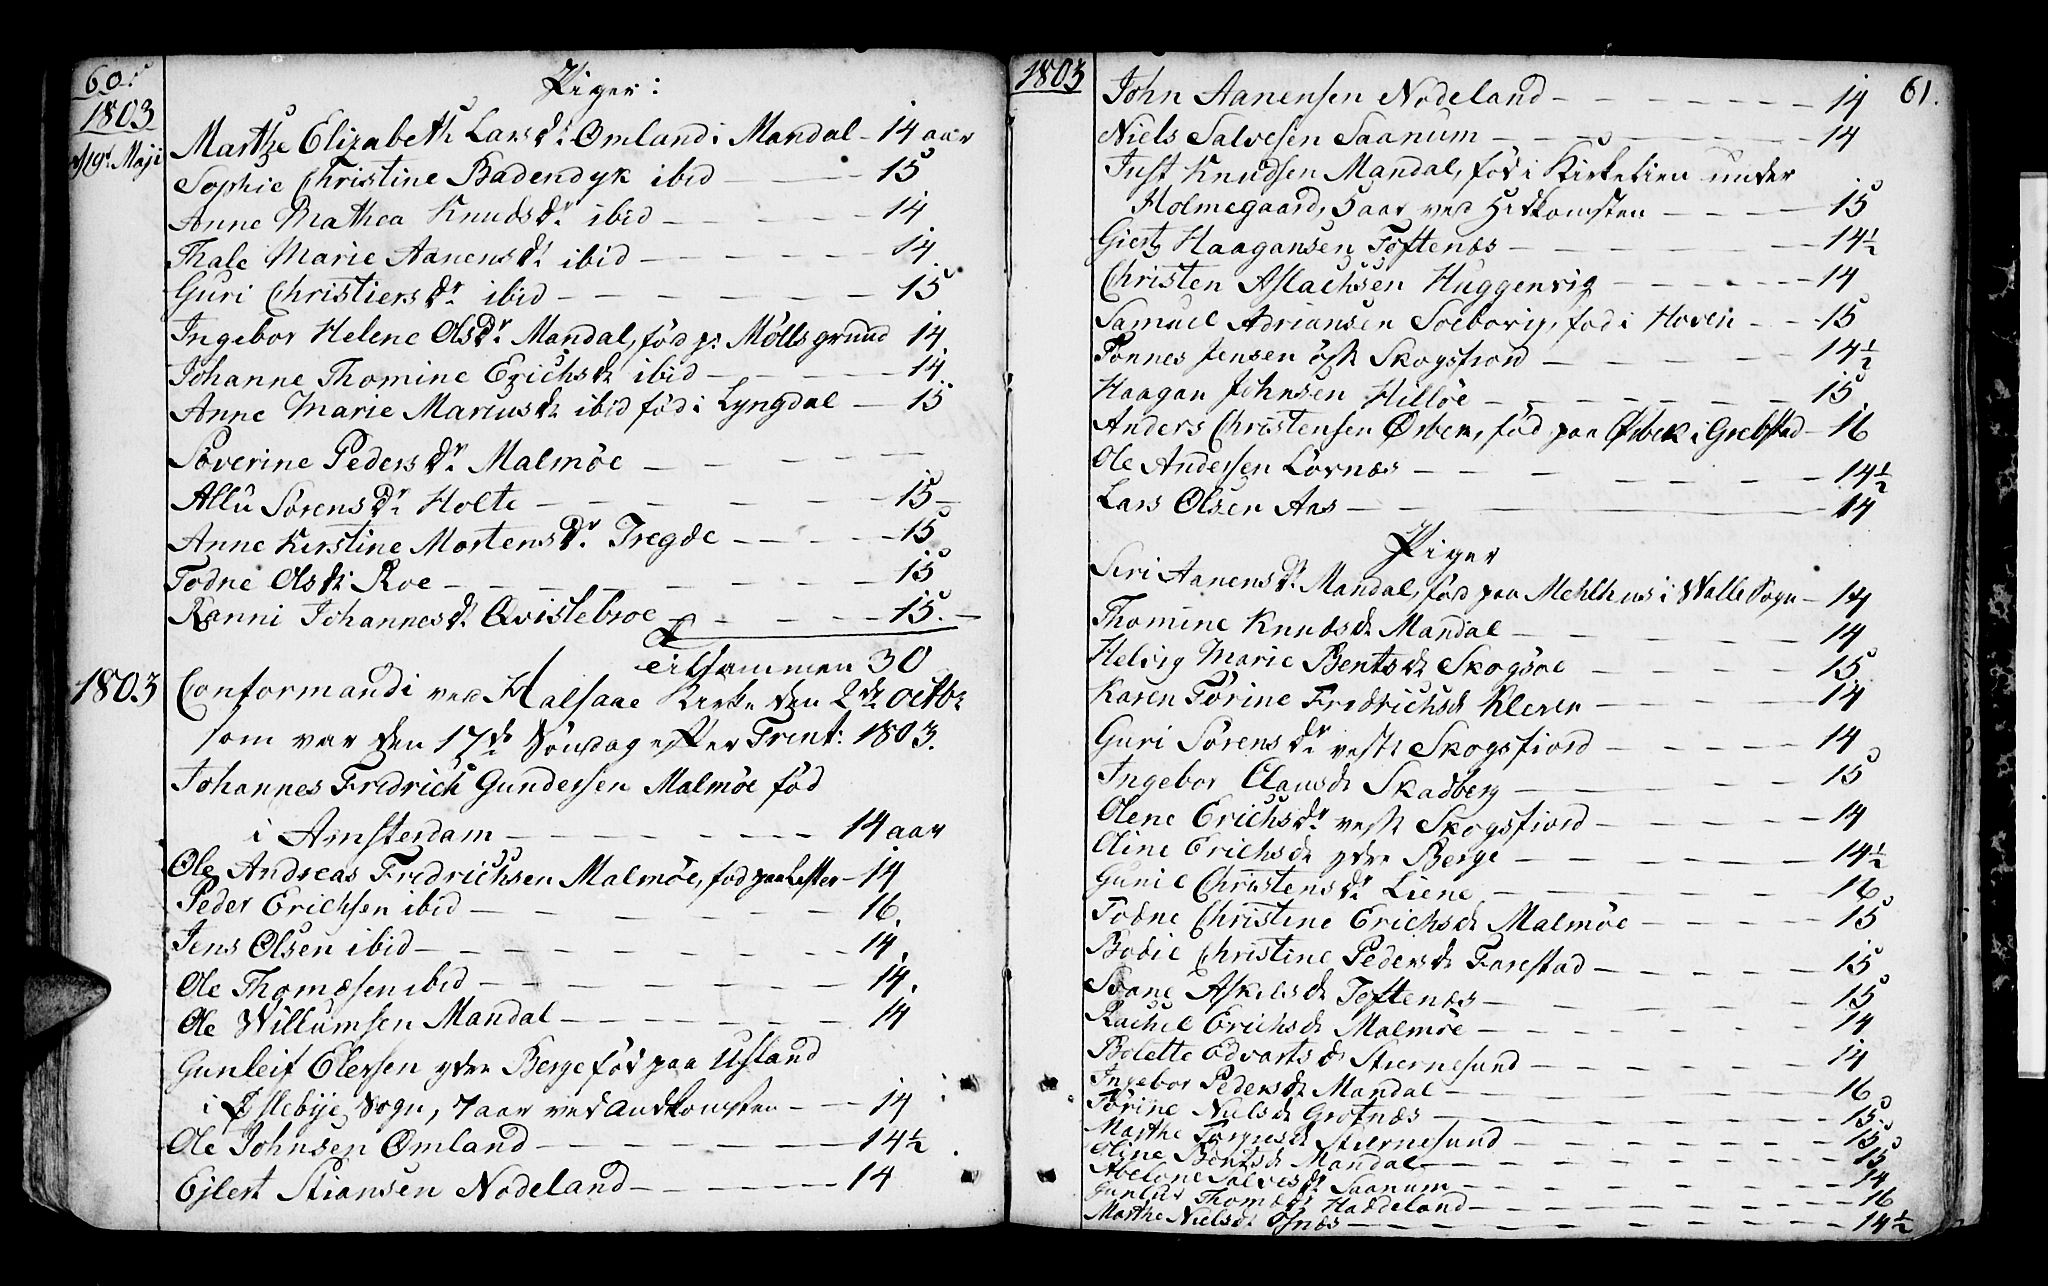 60.
1803
d 19de Maji
Piger:
Marthe Elizabeth Larsdr. Omland i Mandal - 14 aar
Sophie Christine Badendyk ibid - 15
Anne Mathea Knudsdr. ibid - 14
Thale Marie Aanensdr. ibid - 14
Guri Christiersdr. ibid - 15
Ingebor Helene Olsdr. Mandal, föd p: Mölls grund 14
Johanne Thomine Erichsdr ibid - 14
Anne Marie Mariusdr ibid föd i Lyngdal - 15
Severine Pedersdr. Malmöe -
Allu Sörensdr. Holte - 15 -
Anne Kirstine Mortensdr. Tregde - 15
Todne Olsdr. Roe - 15
Ranni Johannesdr. Qvislebroe - 15. -
tilsammen 30
1803 Conformandi ved Halsaae Kirke den 2de Octbr
som var den 17de Söndag efter Trint: 1803.
Johannes Fredrich Gundersen Malmöe föd
i Amsterdam - 14 aar
Ole Andreas Fredrichsen Malmöe, föd paa Lister - 14
Peder Erichsen ibid - 16.
Jens Olsen ibid - 14.
Ole Thomesen ibid - 14.
Ole Willumsen Mandal - 14
Gunleif Elersen ytre Berge föd paa Usland
i Øslebye Sogn, 7 aar ved Andkomsten - 14
Ole Johnsen Omland - 14½
Ejlert Stiansen Nodeland - 14
1803
61.
John Aanensen Nodeland - 14
Niels Salvesen Saanum - 14
Just Knudsen Mandal, föd i Kirkelien under
Holmegaard, 5 aar ved Hidkomsten - 15
Giertz Haagansen Toftenes - 14½
Christen Aslachsen Huggenvig - 14
Samuel Adriansen Soeborig, föd i Haven - 15
Tonnes Jensen öste Skogsfiord - 14½
Haagan Johnsen Hilløe - 15
Anders Christensen Øsbek, föd paa Øsbek i Grebstad - 16
Ole Andersen Lövnæs - 14½
Lars Olsen Aas - 14
Piger
Siri Aanensdr. Mandal, föd paa Mehlhus i Walle Sogn - 14
Thomine Knudsdr Mandal - 14
Helvig Marie Bentsdr Skogsøe - 15
Karen Törine Fredrichsd Kleven - 14
Guri Sörensdr. veste Skogsfiord - 14
Ingebor Clausdr Skadberg - 15
Olene Erichsdr. veste Skogsfiord - 14
Oline Erichsdr ytre Berge - 14½
Gunil Christensdr. Liene - 16
Todne Christine Erichsdr Malmöe - 15
Bodil Christine Pedersdr Farestad - 15
Soane Askilsdr Toftenæs - 15
Rachil Erichsdr Malmöe - 14
Bolette Edvartsdr Stiernesund - 14
Ingebor Pedersdr Mandal - 16
Törine Nielsdr Grofnæs - 15.
Marthe Torgiesdr Stiernesund - 15
Oline Bentsdr Mandal - 15
Abelone Salvesdr. Saanum - 14
Gunlar Thomædr Haddeland - 16
Marthe Nielsdr Osnæs - 14½